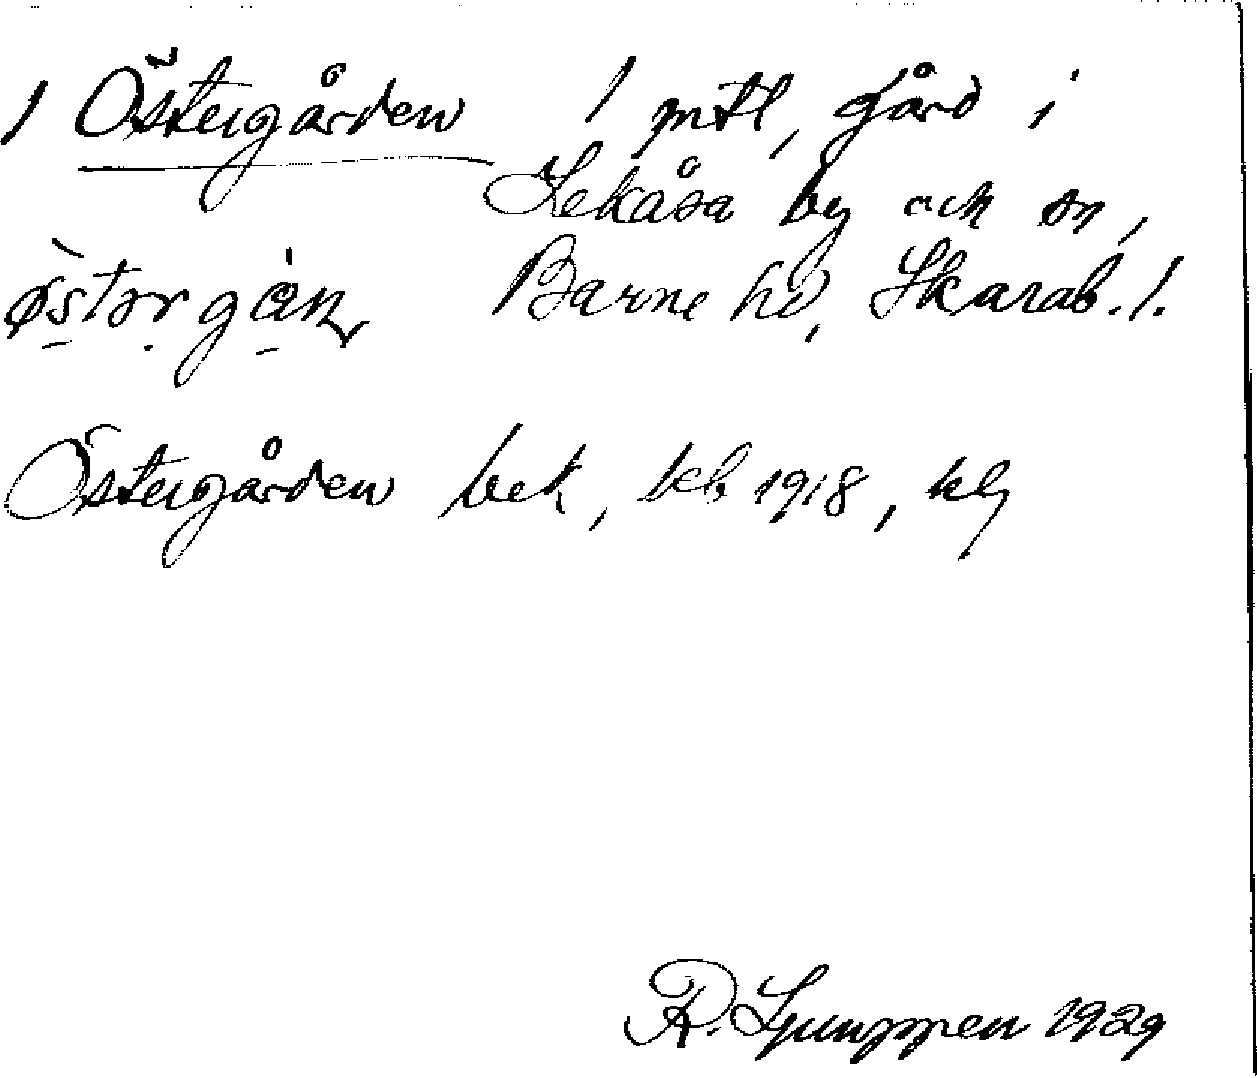 1 Östergården 1 mtl, gård i
Lekåsa by och sn,
østərgàṇ Barne hd, Skarab. l.
Östergården bek, kb 1918, kly
R. Ljunggren 1929